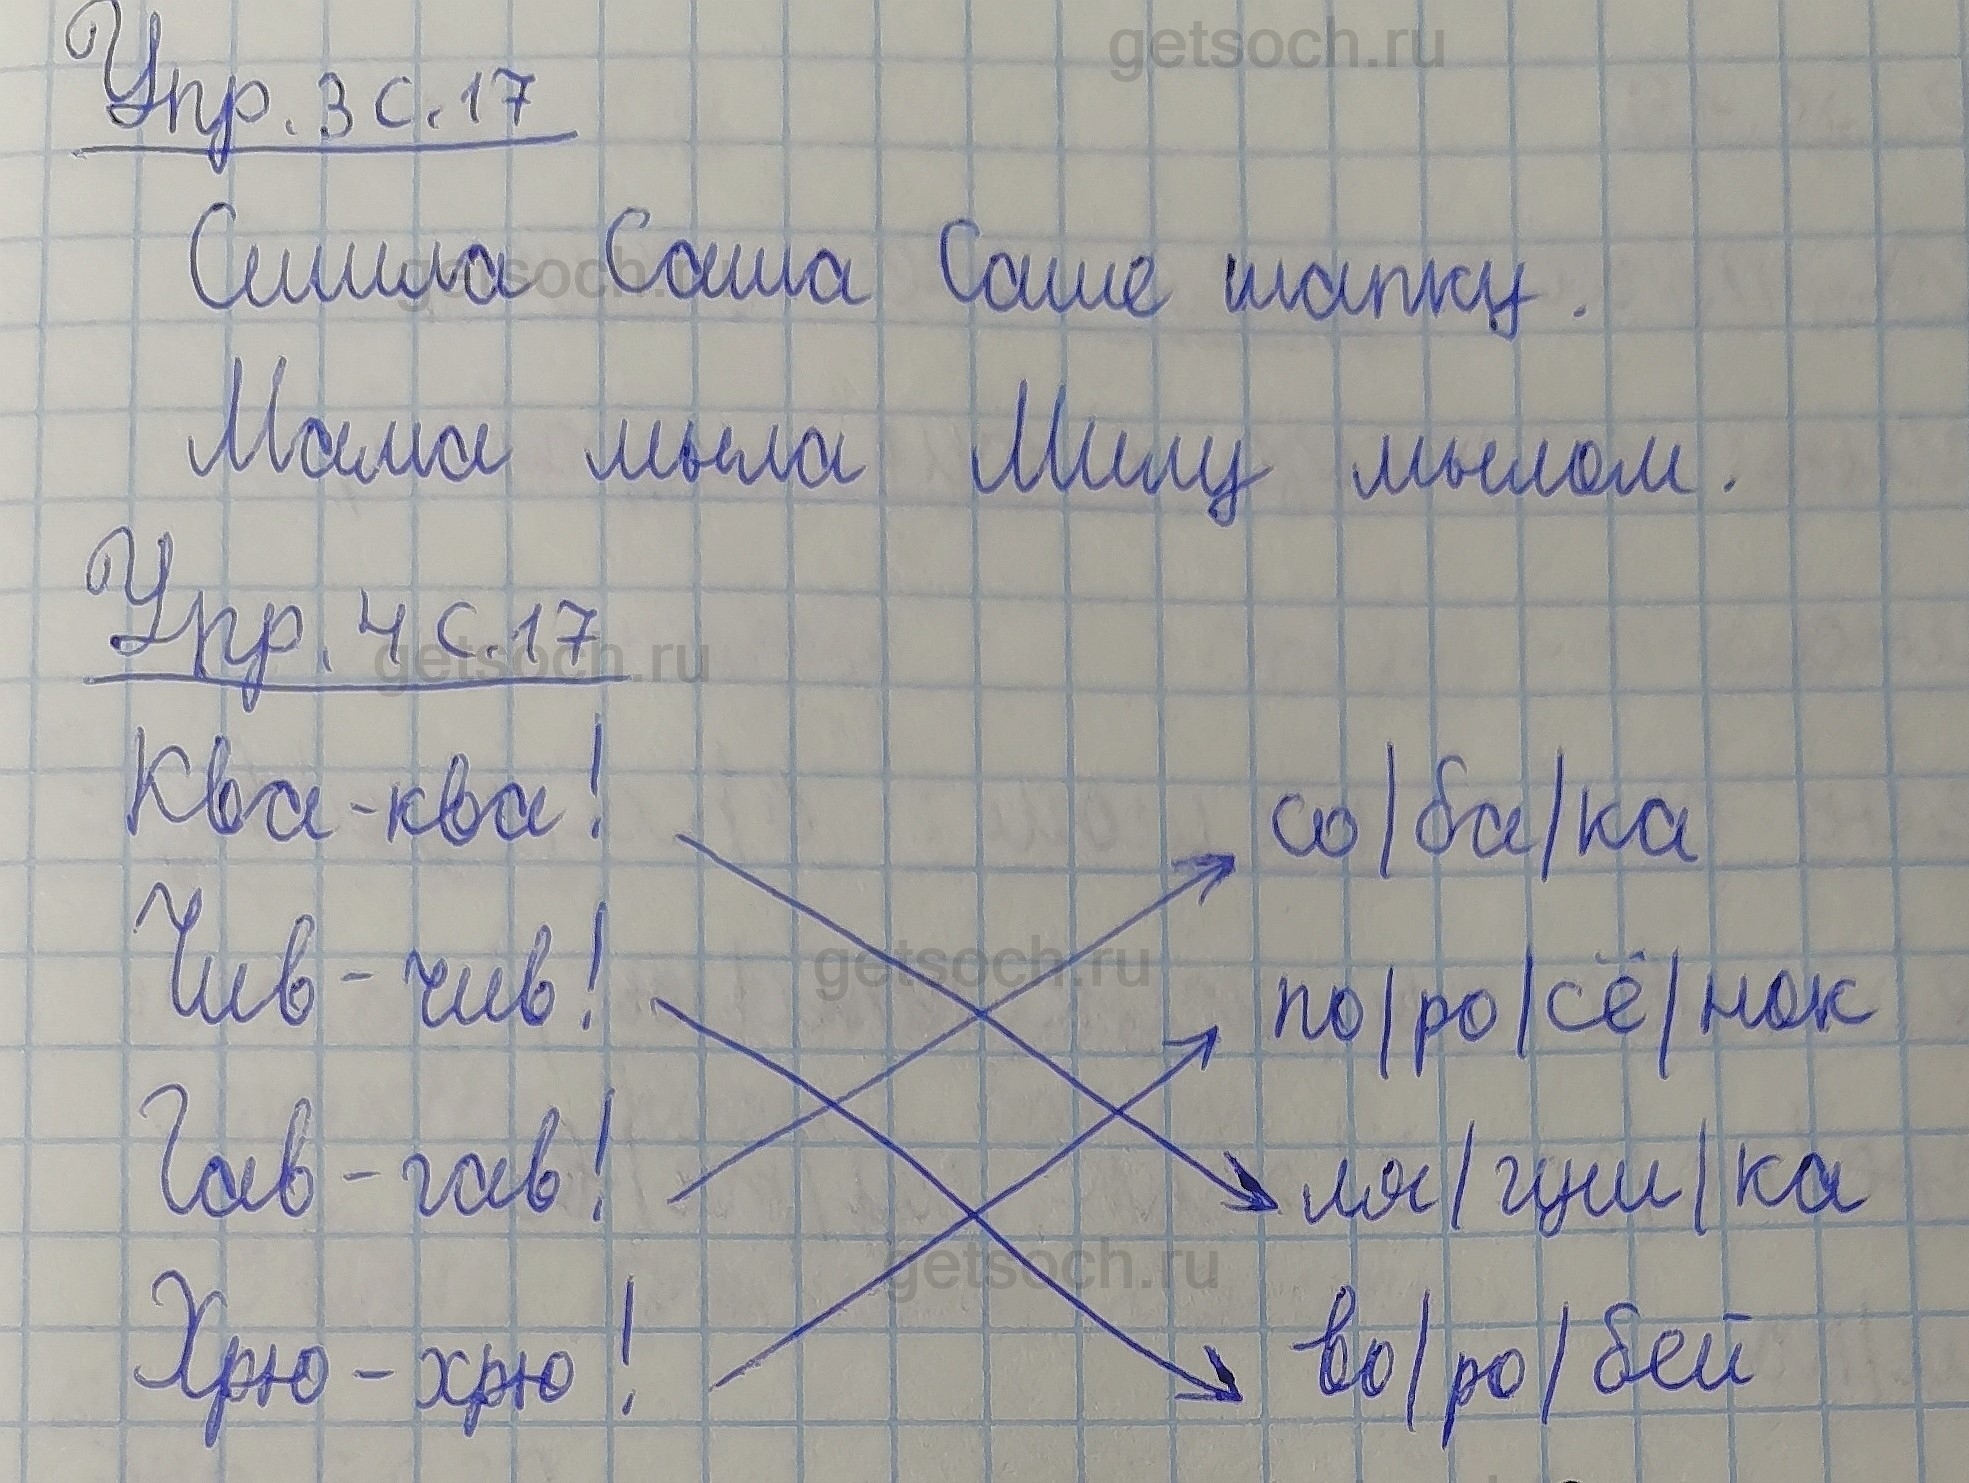 getsoch.ru
Упр. 3 с. 17
Сшила Саша Саше шапку.
getsoch.ru
Мама мыла Милу мылом.
Упр. 4 с. 17
getsoch.ru
Ква-ква! со/ба/ка
Чив-чив! по/ро/сё/нок
getsoch.ru
Гав-гав! ля/гуш/ка
getsoch.ru
Хрю-хрю! во/ро/бей